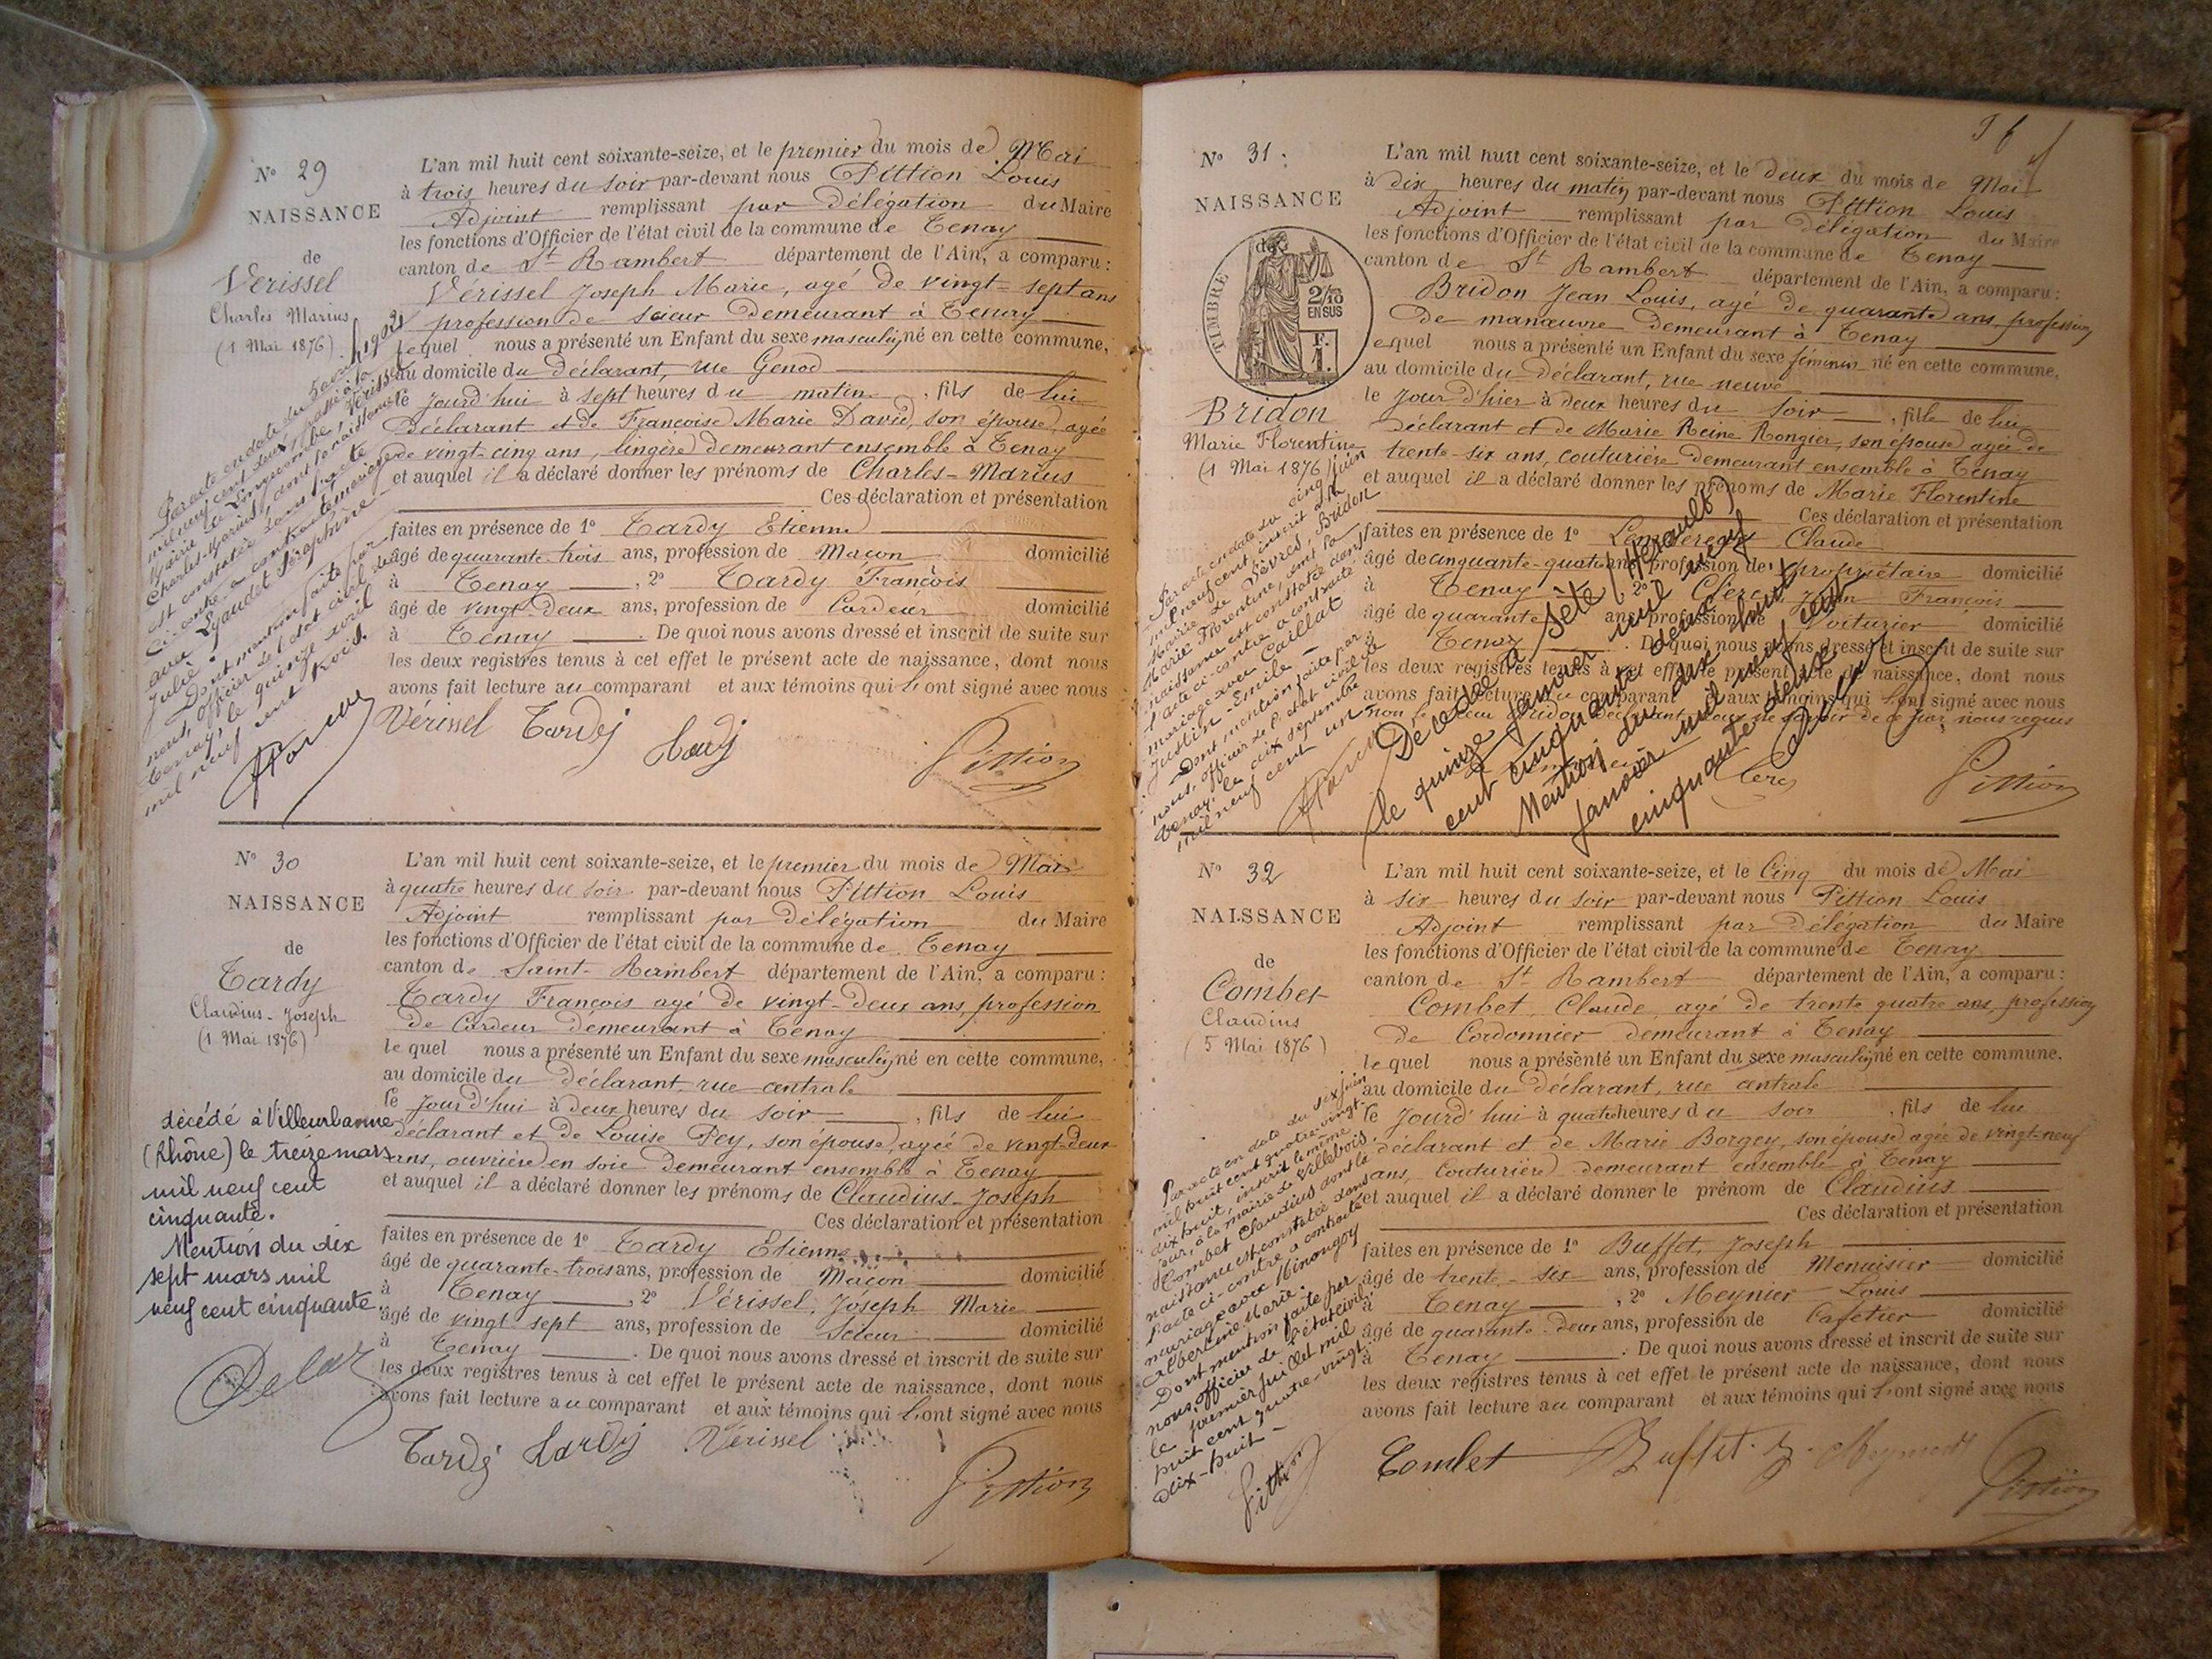 N° 29
NAISSANCE
de
Verissel
Charles Marius
(1 Mai 1876)
L'an mil huit cent soixante-seize, et le premier du mois de Mai
à trois heures du soir par-devant nous Pittion Louis
Adjoint remplissant par délégation du Maire
les fonctions d'Officier de l'état civil de la commune de Tenay
canton de St Rambert département de l'Ain, a comparu :
Vérissel Joseph Marie, agé de vingt-sept ans
profession de scieur demeurant à Tenay
lequel nous a présenté un Enfant du sexe masculin, né en cette commune,
au domicile du déclarant, rue Genod
le jourd'hui à sept heures du matin, fils de lui
déclarant et de Françoise Marie David, son épouse, agée
de vingt-cinq ans, lingère demeurant ensemble à Tenay
et auquel il a déclaré donner les prénoms de Charles-Marius
Ces déclaration et présentation
faites en présence de 1° Tardy Etienne
âgé de quarante-trois ans, profession de Maçon domicilié
à Tenay, 2° Tardy François
âgé de vingt-deux ans, profession de Cardeur domicilié
à Tenay. De quoi nous avons dressé et inscrit de suite sur
les deux registres tenus à cet effet le présent acte de naissance, dont nous
avons fait lecture au comparant et aux témoins qui l'ont signé avec nous
Vérissel Tardy Tardy Pittion
Par acte en date du 5 avril
mil neuf cent deux, passé à la
Mairie de Vérissel
Charles-Marius, dont la naissance
est constatée dans l'acte
ci-contre a contracté mariage
avec Lyaudet Séraphine
Julie.
Dont mention faite par
nous, officier de l'état civil de
Tenay, le quinze avril
mil neuf cent trois.
N° 30
NAISSANCE
de
Tardy
Claudius-Joseph
(1 Mai 1876)
L'an mil huit cent soixante-seize, et le premier du mois de Mai
à quatre heures du soir par-devant nous Pittion Louis
Adjoint remplissant par délégation du Maire
les fonctions d'Officier de l'état civil de la commune de Tenay
canton de Saint-Rambert département de l'Ain, a comparu :
Tardy François agé de vingt-deux ans, profession
de Cardeur demeurant à Tenay
lequel nous a présenté un Enfant du sexe masculin, né en cette commune,
au domicile du déclarant, rue centrale
le jourd'hui à deux heures du soir, fils de lui
déclarant et de Louise Pey, son épouse, agée de vingt-deux
ans, ouvrière en soie demeurant ensemble à Tenay
et auquel il a déclaré donner les prénoms de Claudius-Joseph
Ces déclaration et présentation
faites en présence de 1° Tardy Etienne
âgé de quarante-trois ans, profession de Maçon domicilié
à Tenay, 2° Vérissel, Joseph Marie
âgé de vingt sept ans, profession de Scieur domicilié
à Tenay. De quoi nous avons dressé et inscrit de suite sur
les deux registres tenus à cet effet le présent acte de naissance, dont nous
avons fait lecture au comparant et aux témoins qui l'ont signé avec nous
Tardy Tardy Vérissel Pittion
décédé à Villeurbanne
(Rhône) le treize mars
mil neuf cent
cinquante.
Mention du dix
sept mars mil
neuf cent cinquante.
N° 31
NAISSANCE
de
TIMBRE
2/10
EN SUS
F.
1.
Bridon
Marie Florentine
(1 Mai 1876)
L'an mil huit cent soixante-seize, et le deux du mois de Mai
à dix heures du matin par-devant nous Pittion Louis
Adjoint remplissant par délégation du Maire
les fonctions d'Officier de l'état civil de la commune de Tenay
canton de St Rambert département de l'Ain, a comparu :
Bridon Jean Louis, agé de quarante ans, profession
de manœuvre demeurant à Tenay
lequel nous a présenté un Enfant du sexe féminin né en cette commune,
au domicile du déclarant, rue neuve
le jour d'hier à deux heures du soir, fille de lui
déclarant et de Marie Reine Rongier, son épouse agée de
trente-six ans, couturière demeurant ensemble à Tenay
et auquel il a déclaré donner les prénoms de Marie Florentine
Ces déclaration et présentation
faites en présence de 1° Claude
âgé de cinquante-quatre ans, profession de propriétaire domicilié
à Tenay 2° Clerc, Jean François
âgé de quarante ans, profession de Voiturier domicilié
à Tenay. De quoi nous avons dressé et inscrit de suite sur
les deux registres tenus à cet effet le présent acte de naissance, dont nous
avons fait lecture au comparant et aux témoins qui l'ont signé avec nous
non le sieur Bridon déclarant pour ne savoir de ce par nous requis
Clerc Pittion
Par acte en date du cinq juin
mil neuf cent un, inscrit à la
Mairie de Bridon
Marie Florentine, dont la
naissance est constatée dans
l'acte ci-contre a contracté
mariage avec Caillat
Justin-Emile
Dont mention faite par
nous, officier de l'état civil de
Tenay, le dix septembre
mil neuf cent un
Décédée à Sète (Hérault)
le quinze janvier mil neuf
cent cinquante deux
Mention du dix huit
janvier mil neuf cent
cinquante deux
N° 32
NAISSANCE
de
Combet
Claudius
(5 Mai 1876)
L'an mil huit cent soixante-seize, et le Cinq du mois de Mai
à six heures du soir par-devant nous Pittion Louis
Adjoint remplissant par Délégation du Maire
les fonctions d'Officier de l'état civil de la commune de Tenay
canton de St Rambert département de l'Ain, a comparu :
Combet, Claude, agé de trente quatre ans, profession
de Cordonnier demeurant à Tenay
lequel nous a présenté un Enfant du sexe masculin, né en cette commune,
au domicile du déclarant, rue centrale
le jourd'hui à quatre heures du soir, fils de lui
déclarant et de Marie Borgey, son épouse agée de vingt-neuf
ans, Couturière demeurant ensemble à Tenay
et auquel il a déclaré donner le prénom de Claudius
Ces déclaration et présentation
faites en présence de 1° Buffet, Joseph
âgé de trente-six ans, profession de Menuisier domicilié
à Tenay, 2° Meynier Louis
âgé de quarante-deux ans, profession de Cafetier domicilié
à Tenay. De quoi nous avons dressé et inscrit de suite sur
les deux registres tenus à cet effet le présent acte de naissance, dont nous
avons fait lecture au comparant et aux témoins qui l'ont signé avec nous
Combet Buffet J. Meynier Pittion
Par acte en date du six juin
mil huit cent quatre-vingt-
dix huit, inscrit le même
jour, à la mairie de Villebois,
Combet Claudius dont la
naissance est constatée dans
l'acte ci-contre a contracté
mariage avec
Albertine Marie.
Dont mention faite par
nous, officier de l'état civil,
le premier juillet mil
huit cent quatre-vingt-
dix-huit